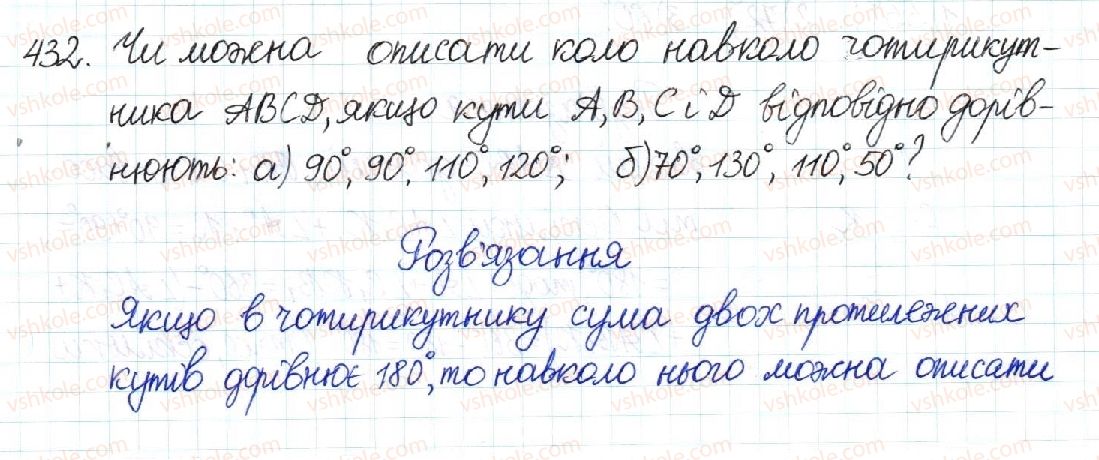 432. Чи можна описати коло навколо чотирикут-
ника ABCD, якщо кути A, B, C і D відповідно дорів-
нюють: а) 90°, 90°, 110°, 120°; б) 70°, 130°, 110°, 50°?
Розв'язання
Якщо в чотирикутнику сума двох протилежних
кутів дорівнює 180°, то навколо нього можна описати